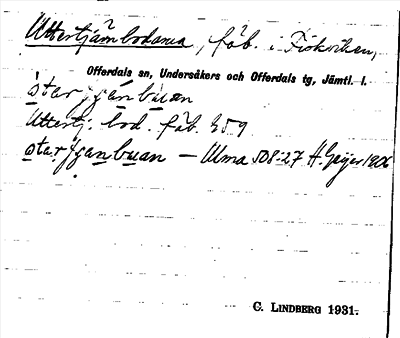 Uttertjärnbodarna, fäb. i Fiskviken,
Offerdals sn, Undersåkers och Offerdals tg, Jämtl. l.
starjjanbuan
Uttertj. bod. fäb. 359
starjjanbuan — Ulma 508:27 H. Geijer 1906
C. LINDBERG 1931.